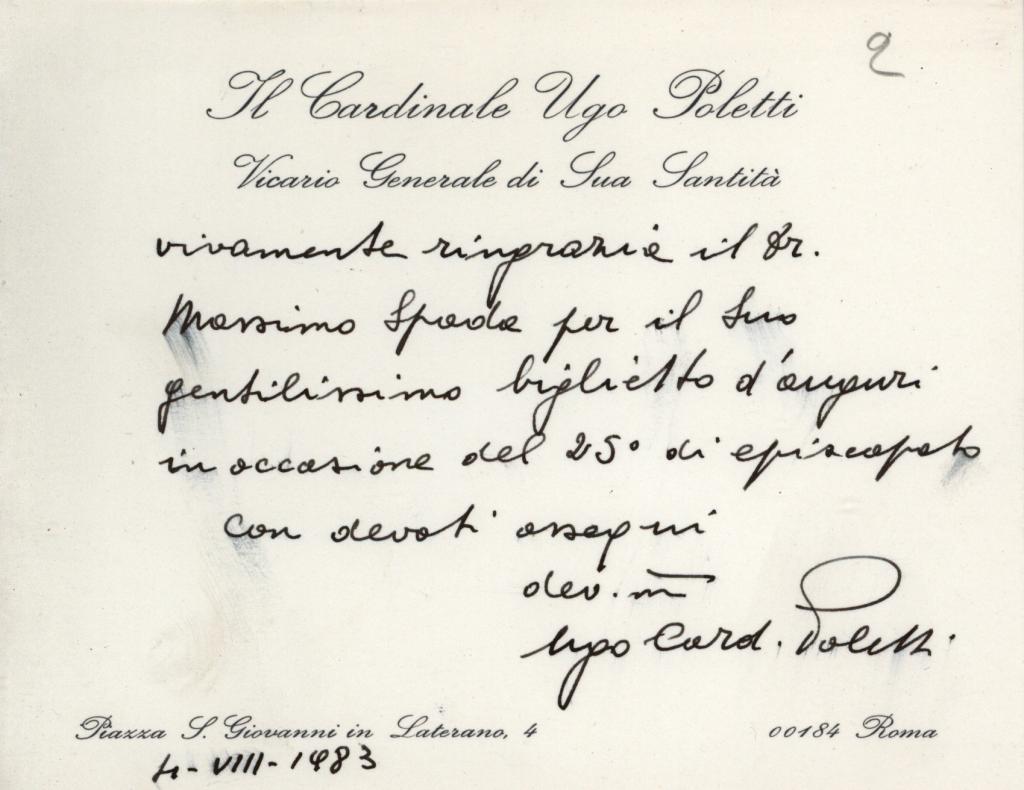 2
Il Cardinale Ugo Poletti
Vicario Generale di Sua Santità
vivamente ringrazia il Dr.
Massimo Spada per il Suo
gentilissimo biglietto d'auguri
in occasione del 25° di episcopato
Con devoti ossequi
dev.m
Ugo Card. Poletti.
Piazza S. Giovanni in Laterano, 4 00184 Roma
4-VIII-1983